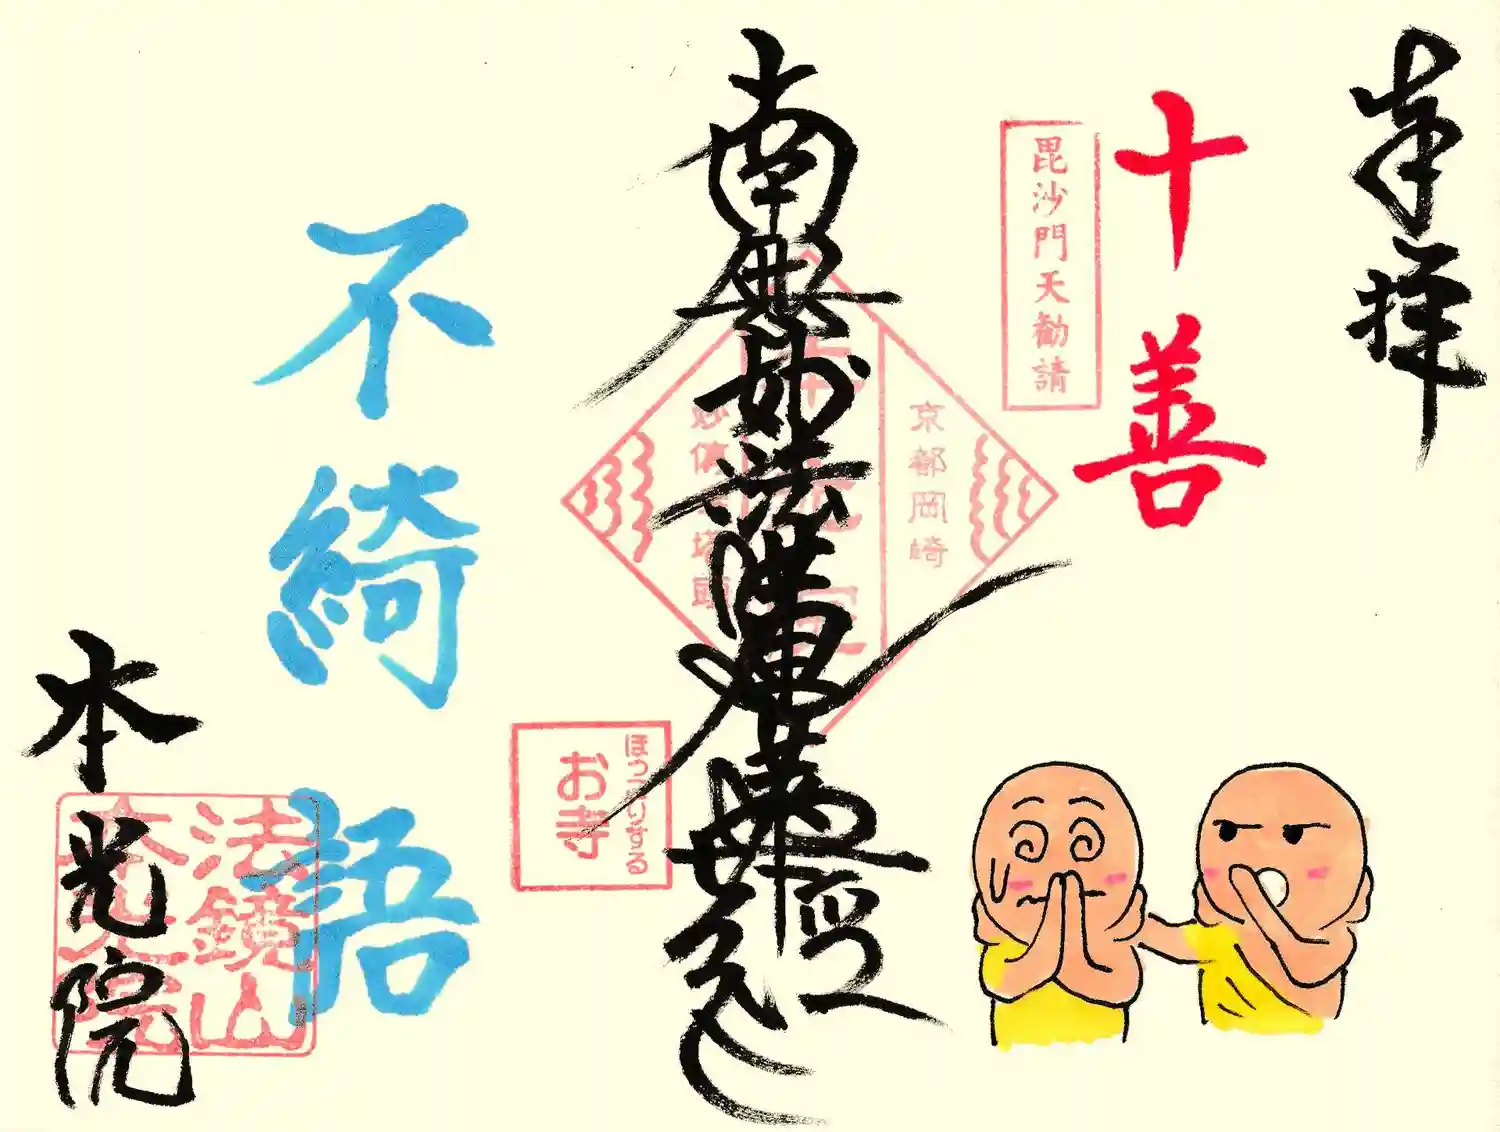 奉拝
十善
毘沙門天勧請
京都岡崎
南無妙法蓮華経
妙傳寺塔頭
ほっこりする
お寺
不綺語
法鏡山
本光院
本光院